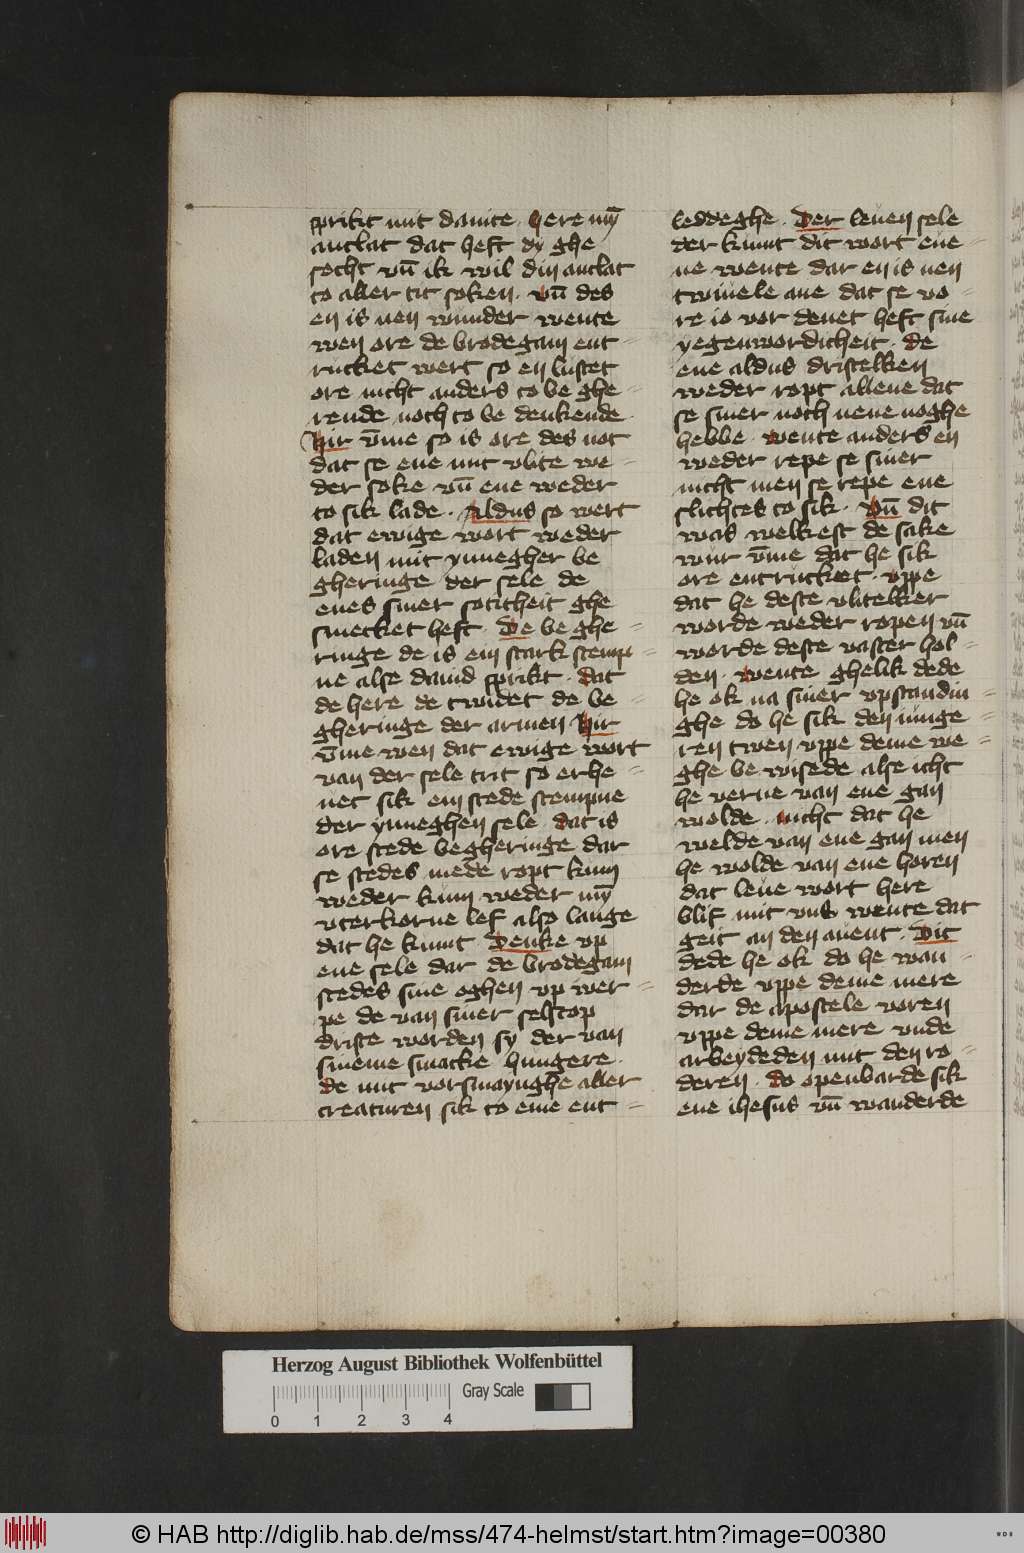 sprikt mit dauite · here my̅
antlat dat heft dy ghe
socht vn̅ ik wil din antlat
to aller tit soken · vn̅ des
en is nen wunder wente
wen ore de brodegam ent
rucket wert so en lustet
ore nicht anders to be ghe
rende noch to be denkende ·
Hir v̅me so is ore des not
dat se ene mit vlite we
der soke vn̅ ene weder
to sik lade · Aldus so wert
dat ewige wort weder
laden mit ynnegher be
gheringe der sele de
enes siner soticheit ghe
smecket heft · De be ghe
ringe de is ein stark stemp
ne alse dauid sprikt · dat
de here de twidet de be
gheringe der armen Hir
v̅me wen dat ewige wort
van der sele trit so erhe
uet sik ein stede stempne
der ynneghen sele · dat is
ore stede begheringe dar
se stedes mede ropt kum
weder kum weder my̅
vterkorne lef also lange
dat he kumt · Denke vp
ene sele dar de brodegam
stedes sine oghen vp wer
pe de van siner selscop
driste worden sy der van
sineme smacke hungere ·
de mit vorsmaynghe aller
creaturen sik to eme ent
leddeghe · Der leuen sele
der kumt dit wort eue
ne wente dar en is nen
twiuele ane dat se vo
re io vor denet heft sine
yegenwordicheit · de
ene aldus dristelken
weder ropt allene dat
se siner noch nene noghe
hebbe · wente anders en
weder repe se siner
nicht men se repe ene
slichtes to sik · Vn̅ dit
was welkest de sake
wur v̅me dat he sik
ore entrucket · vppe
dat he deste vlitelker
worde weder ropen vn̅
worde deste vaster hol
den · wente ghelik dede
he ok na siner vpstandin
ghe do he sik den iunge
ren twen vppe deme we
ghe be wisede alse icht
he verne van ene gan
wolde · nicht dat he
welde van ene gan men
he wolde van ene horen
dat leue wort here
blif mit vns wente dat
geit an den auent · Dit
dede he ok do he wan
derde vppe deme mere
dar de apostele voren
vppe deme mere vnde
arbeydeden mit den ro
deren · do openbarde sik
ene ihesus vn̅ wanderde
Herzog August Bibliothek Wolfenbüttel
Gray Scale
0 1 2 3 4
© HAB http://diglib.hab.de/mss/474-helmst/start.htm?image=00380